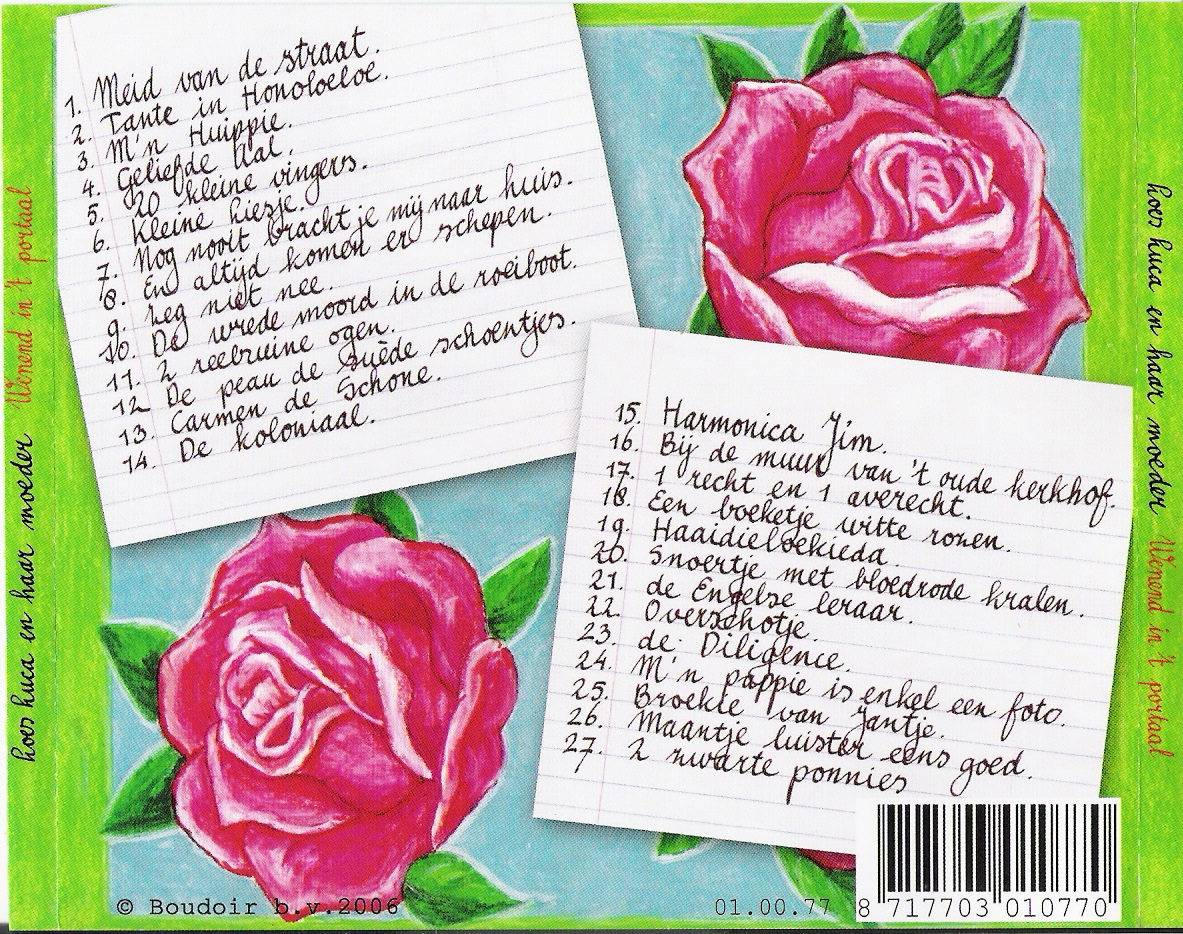 1. Meid van de straat.
2. Tante in Honoloeloe.
3. M'n Huippie.
4. Geliefde Aal.
5. 20 kleine vingers.
6. Kleine hiesje.
7. Nog nooit bracht je mij naar huis.
8. En altijd komen er schepen.
9. Zeg niet nee.
10. De wrede moord in de roeiboot.
11. 2 reebruine ogen.
12 De peau de suède schoentjes.
13. Carmen de Schone.
14. De koloniaal.
15. Harmonica Jim.
16. Bij de muur van 't oude kerkhof.
17. 1 recht en 1 averecht.
18. Een boeketje witte rozen.
19. Haaidieboekieda.
20. Snoertje met bloedrode kralen.
21. de Engelse leraar.
22. Overschotje.
23. de Diligence.
24. M'n pappie is enkel een foto.
25. Broekie van Jantje.
26. Maantje luister eens goed.
27. 2 zwarte ponnies
hoes huca en haar moeder Wenend in 't portaal
hoes huca en haar moeder Wenend in 't portaal
© Boudoir b.v.2006
01.00.77
8 717703 010770